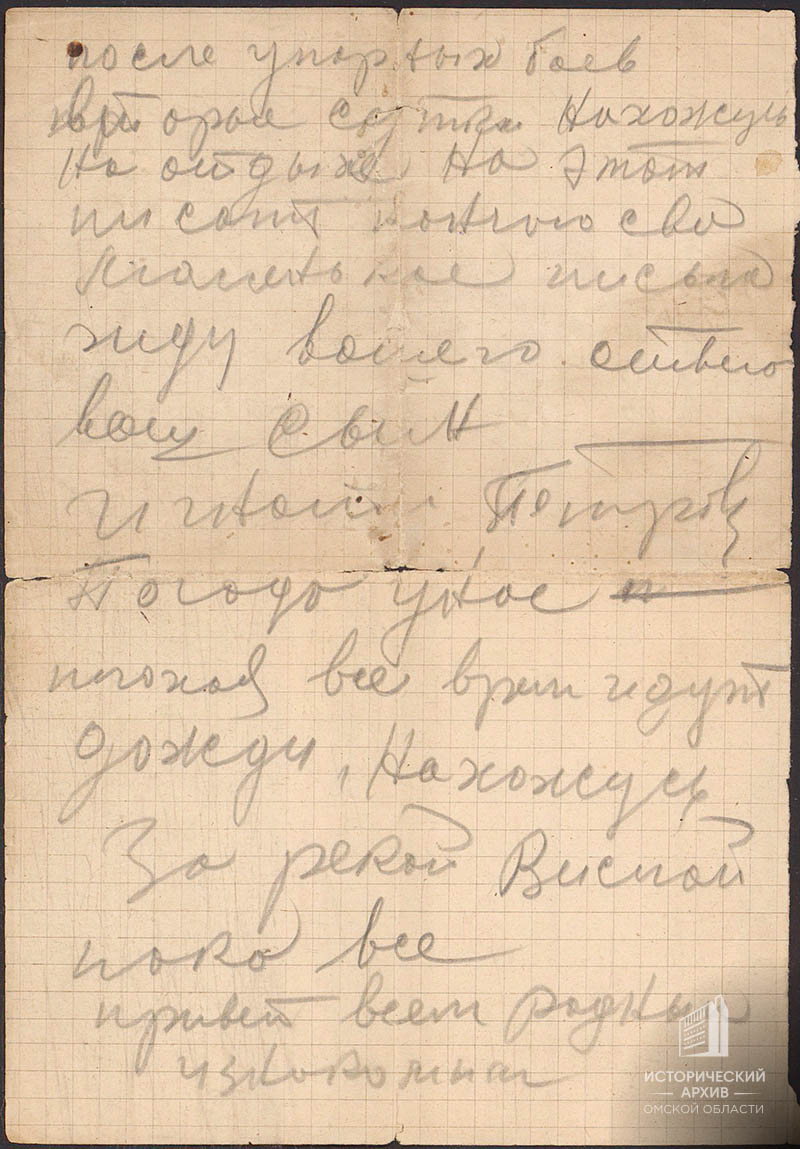 после упорных боев
вторые сутки Нахожусь
На отдыхе На этом
писат кончаю сво
маленькое письмо
жду вашего ответа
ваш сын
Игнат Петров
Погода у нас п
плохая все врем идут
дожди, Нахожусь
За рекой Вислой
пока все
привет всем родным
и знакомым
ИСТОРИЧЕСКИЙ
АРХИВ
ОМСКОЙ ОБЛАСТИ